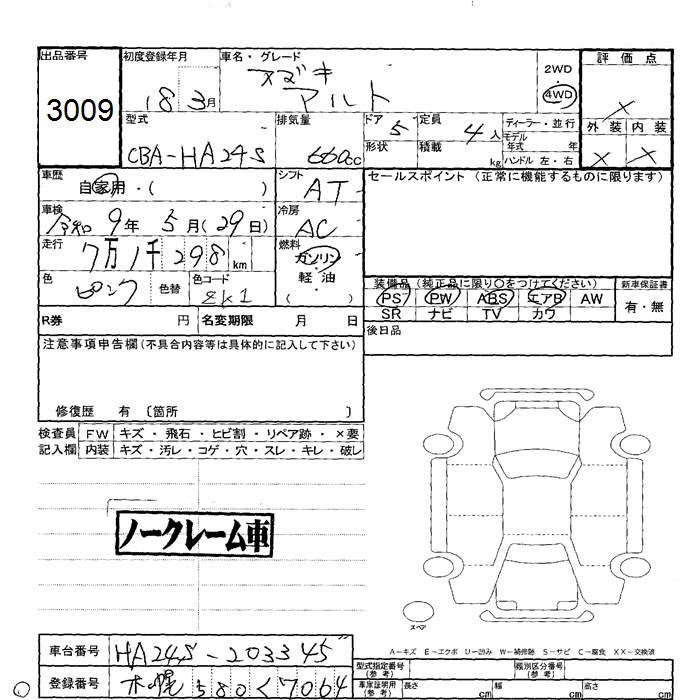 出品番号 初度登録年月 車名・グレード 評価点
3009 18 3月 スズキ アルト 2WD 4WD ×
型式 排気量 ドア 5 定員 4人 ディーラー・並行 外装 内装
CBA-HA24S 660cc 形状 積載 kg モデル年式 年 × ×
ハンドル 左・右
車歴 自家用・( ) シフト AT セールスポイント (正常に機能するものに限ります)
車検 令和 9年 5月(29日) 冷房 AC
走行 7万1千298km 燃料 ガソリン
色 ピンク 色替 色コード 軽油 ( )
装備品 (純正品に限り○をつけてください) 新車保証書
PS PW ABS エアB AW 有・無
SR ナビ TV カワ
R券 円 名変期限 月 日 後日品
注意事項申告欄(不具合内容等は具体的に記入して下さい)
修復歴 有 〔箇所 〕
検査員 FW キズ・飛石・ヒビ割・リペア跡・×要
記入欄 内装 キズ・汚レ・コゲ・穴・スレ・キレ・破レ
ノークレーム車
スペア
A-キズ E-エクボ U-凹み W-補修跡 S-サビ C-腐食 XX-交換済
車台番号 HA24S-203345 型式指定番号(参考) 類別区分番号(参考)
登録番号 札幌 580 く 7064 車庫証明用(参考) 長さ cm 幅 cm 高さ cm